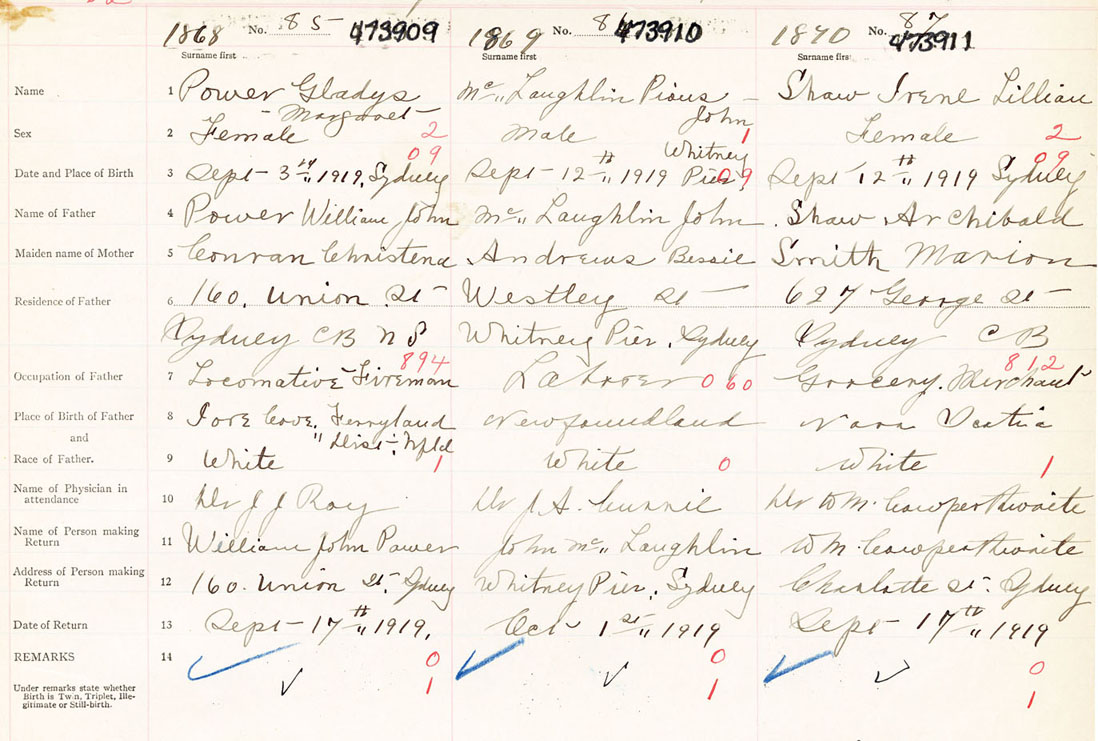 1868 No. 85 473909 1869 No. 86 473910 1870 No. 87 473911
Surname first Surname first Surname first
Name 1 Power Gladys Mc„ Laughlin Pious Shaw Irene Lillian
Margaret John
Sex 2 Female 2 Male 1 Female 2
09 Whitney 09
Date and Place of Birth 3 Sept 3rd„ 1919, Sydney Sept 12th„ 1919 Pier, 09 Sept 12th„ 1919 Sydney
Name of Father 4 Power William John Mc„ Laughlin John Shaw Archibald
Maiden name of Mother 5 Conran Christena Andrews Bessie Smith Marion
Residence of Father 6 160. Union St Westley St 627 George St
Sydney CB N S Whitney Pier, Sydney Sydney CB
894 812
Occupation of Father 7 Locomative Fireman Laborer 060 Grocery. Merchant
Place of Birth of Father 8 Cove, Ferryland Newfoundland Nova Scotia
and „ Dist, Nfld
Race of Father. 9 White 1 White 0 White 1
Name of Physician in
attendance 10 Dr J J Roy Dr J. A. Dr W M. Cowperthwaite
Name of Person making
Return 11 William John Power John Mc„ Laughlin W M. Cowperthwaite
Address of Person making
Return 12 160. Union St, Sydney Whitney Pier, Sydney Charlotte St. Sydney
Date of Return 13 Sept 17th„ 1919, Oct 1st„ 1919 Sept 17th„ 1919
REMARKS 14 0 0 0
Under remarks state whether 1 1 1
Birth is Twin, Triplet, Ille-
gitimate or Still-birth.